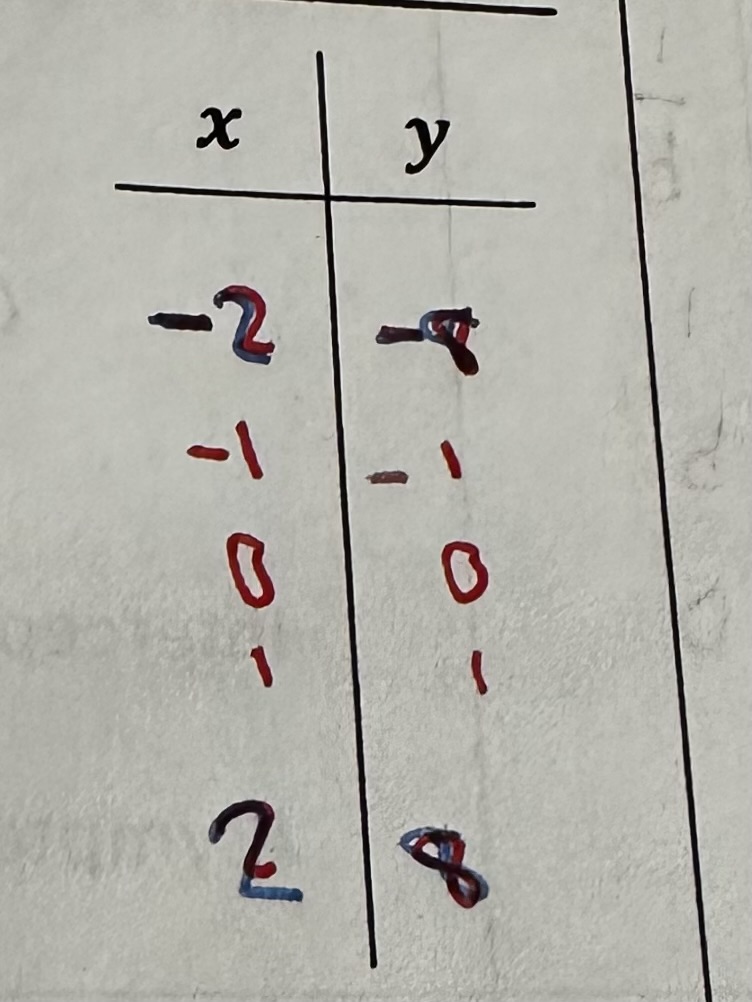 x y
-2 -8
-1 -1
0 0
1 1
2 8